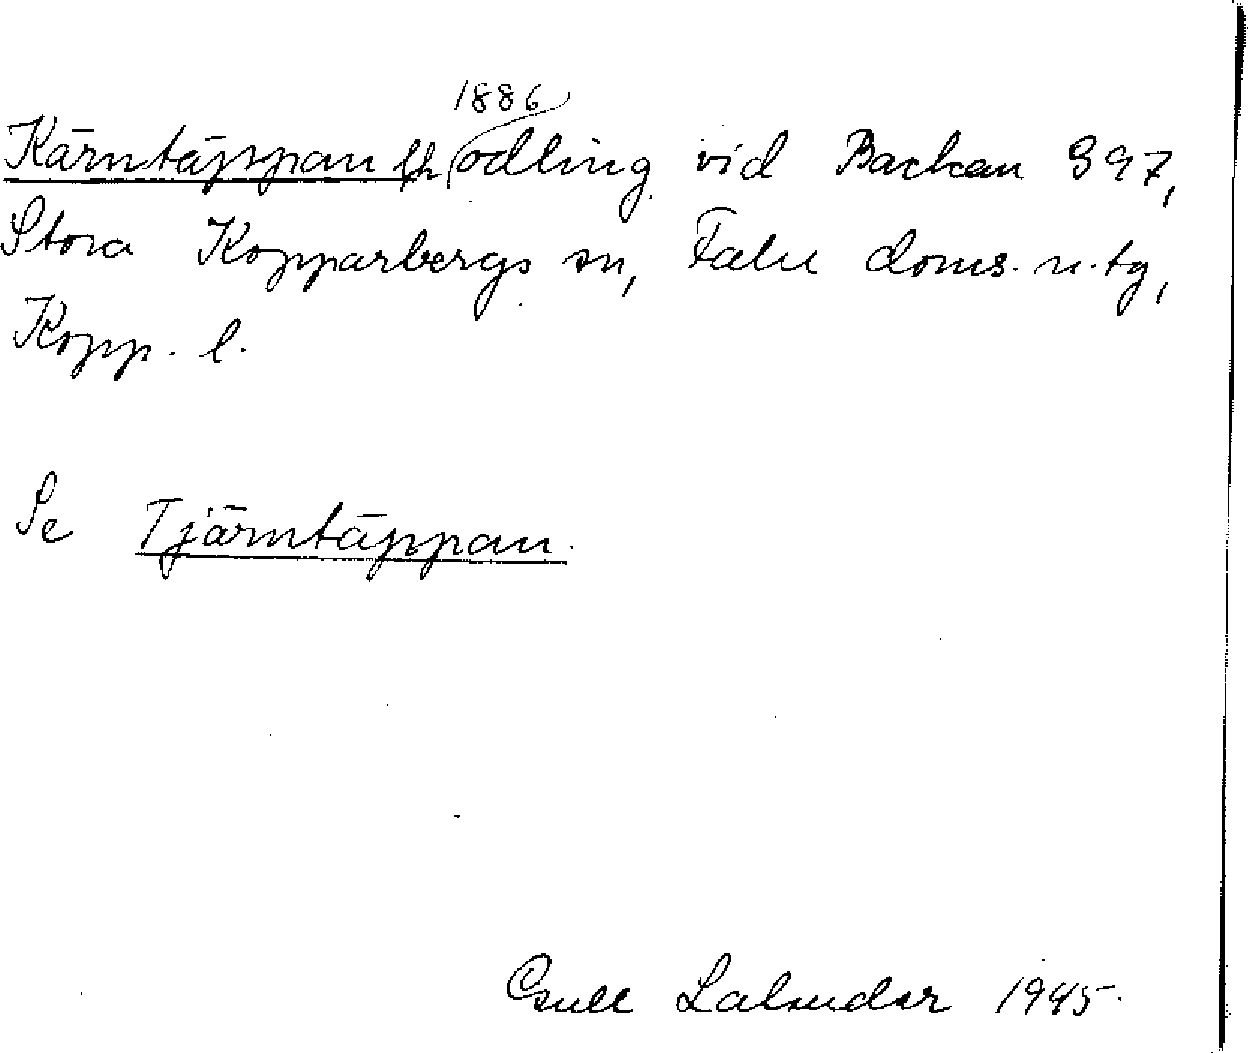 1886
Kärntäppan fh odling vid Backan 397,
Stora Kopparbergs sn, Falu doms. n. tg,
Kopp. l.
Se Tjärntäppan.
1945.